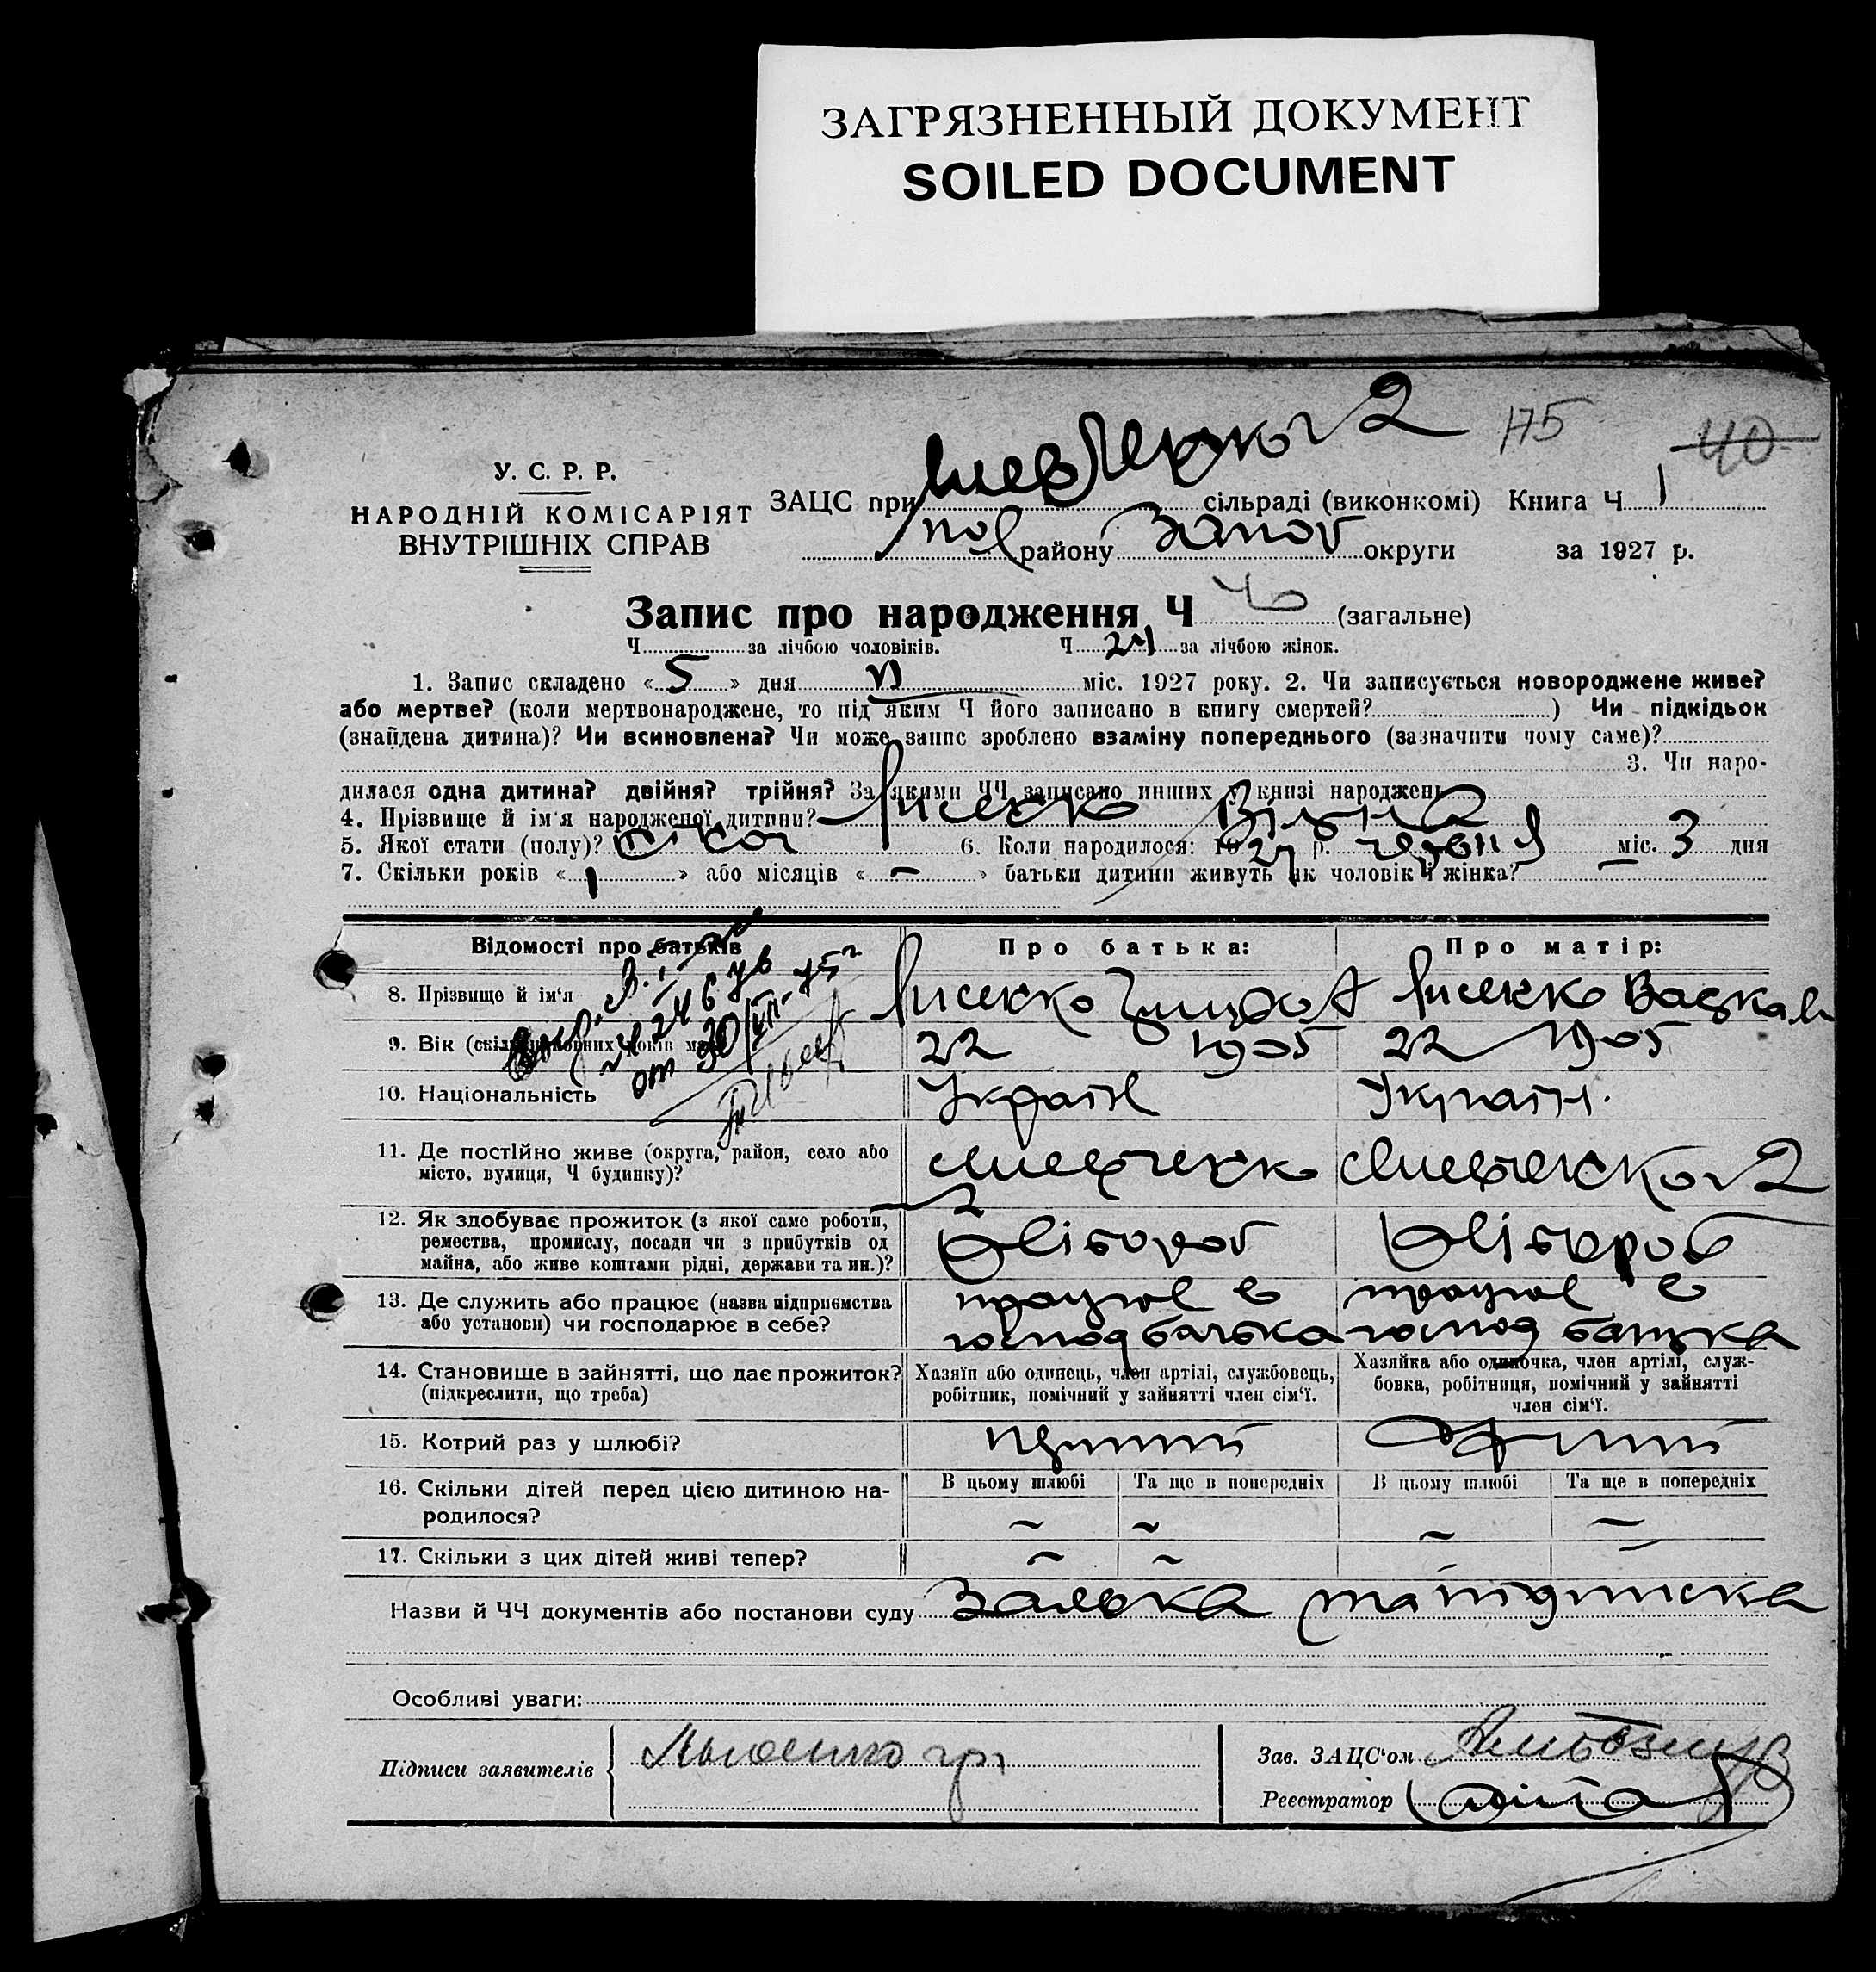 ЗАГРЯЗНЕННЫЙ ДОКУМЕНТ
SOILED DOCUMENT
175 40
У. С. Р. Р.
НАРОДНІЙ КОМІСАРІЯТ
ВНУТРІШНІХ СПРАВ
ЗАЦС при 2 сільраді (виконкомі) Книга Ч 1
пол району Запоріз округи за 1927 р.
Запис про народження Ч 40 (загальне)
Ч за лічбою чоловіків. Ч 24 за лічбою жінок.
1. Запис складено «5» дня VI міс. 1927 року. 2. Чи записується новороджене живе?
або мертве? (коли мертвонароджене, то під яким Ч його записано в книгу смертей?) Чи підкідьок
(знайдена дитина)? Чи всиновлена? Чи може запис зроблено взаміну попереднього (зазначити чому саме)?
3. Чи наро-
дилася одна дитина? двійня? трійня? За якими ЧЧ записано инших у книзі народжень
4. Прізвище й ім'я народженої дитини? Лисенко
5. Якої стати (полу)? 6. Коли народилося: 1927 р. червня міс. 3 дня
7. Скільки років «1» або місяців «–» батьки дитини живуть як чоловік і жінка?
Відомості про батьків
Про батька:
Про матір:
8. Прізвище й ім'я
Лисенко
Лисенко
№ 246
от 30/VII-45г
9. Вік
22 1905
22 1905
10. Національність
Україн
Україн.
11. Де постійно живе (округа, район, село або
місто, вулиця, Ч будинку)?
2
2
12. Як здобуває прожиток (з якої само роботи,
ремества, промислу, посади чи з прибутків од
майна, або живе коштами рідні, держави та ин.)?
Хлібороб
Хлібороб
13. Де служить або працює (назва підприємства
або установи) чи господарює в себе?
працює в
господ батька
працює в
господ батька
14. Становище в зайнятті, що дає прожиток?
(підкреслити, що треба)
Хазяїн або одинець, член артілі, службовець,
робітник, помічний у зайнятті член сім'ї.
Хазяйка або одиночка, член артілі, служ-
бовка, робітниця, помічний у зайнятті
член сім'ї.
15. Котрий раз у шлюбі?
перший
перший
16. Скільки дітей перед цією дитиною на-
родилося?
В цьому шлюбі Та ще в попередніх В цьому шлюбі Та ще в попередніх
– – – –
17. Скільки з цих дітей живі тепер?
– – – –
Назви й ЧЧ документів або постанови суду та підписка
Особливі уваги:
Підписи заявителів
Зав. ЗАЦС'ом
Реєстратор